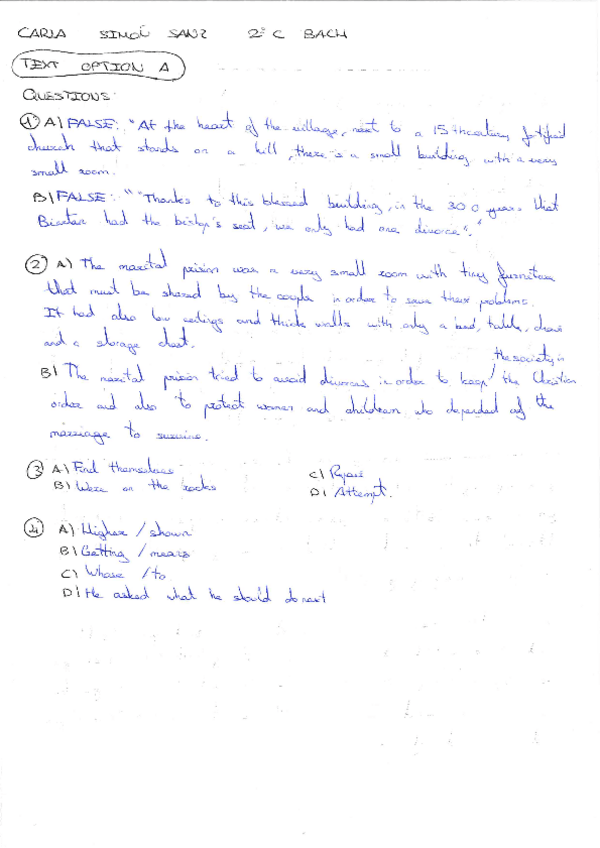 CARLA SIMÓ SANZ 2º C BACH
TEXT OPTION A
QUESTIONS:
① A) FALSE: "At the heart of the village, next to a 15th century fortified
church that stands on a hill, there is a small building with a very
small room.
B) FALSE: ""Thanks to this blessed building, in the 300 years that
Biertan had the bishop's seat, we only had one divorce"."
② A) The marital prison was a very small room with tiny furniture
that must be shared by the couple in order to save their problems.
It had also low ceilings and thick walls with only a bed, table, chair
and a storage chest.
the society in
B) The marital prison tried to avoid divorces in order to keep the Christian
order and also to protect women and children who depended of the
marriage to survive.
③ A) Find themselves
B) Were on the rocks
C) Repair
D) Attempt.
④ A) Higher / shown
B) Getting / means
C) Whose / to
D) He asked what he should do next